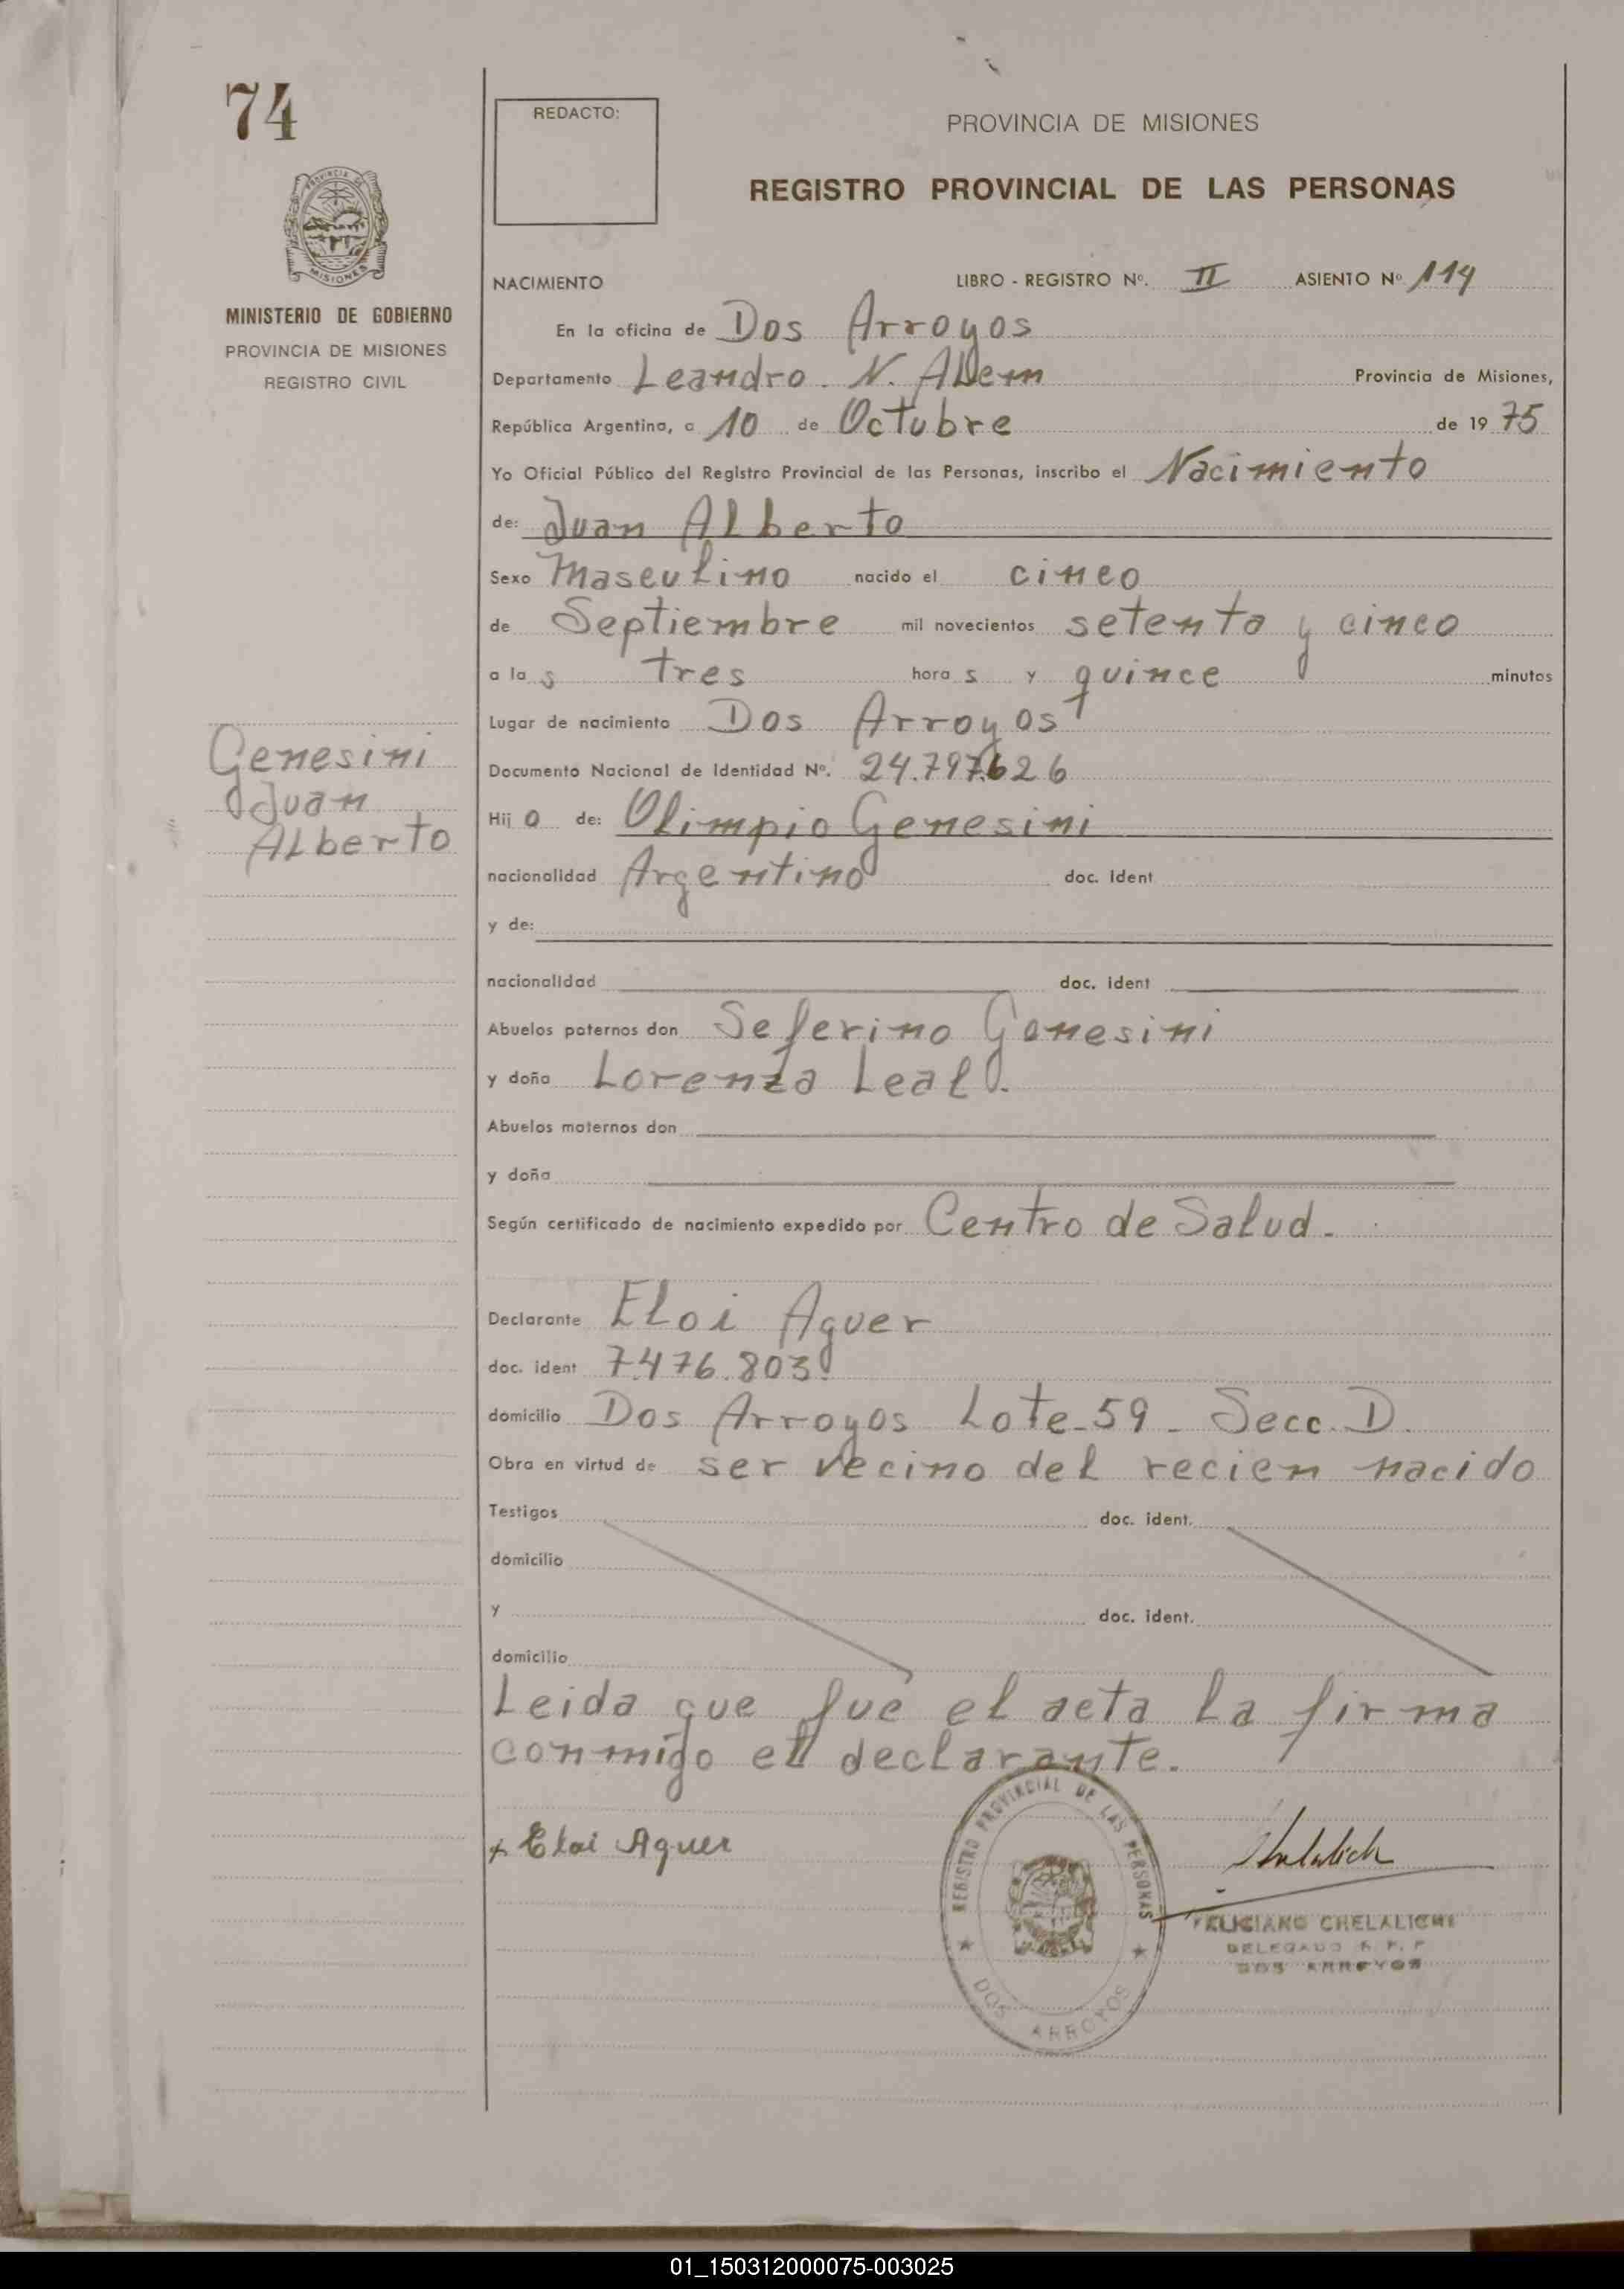 74
REDACTO:
PROVINCIA DE MISIONES
REGISTRO PROVINCIAL DE LAS PERSONAS
PROVINCIA DE
MISIONES
MINISTERIO DE GOBIERNO
PROVINCIA DE MISIONES
REGISTRO CIVIL
NACIMIENTO LIBRO - REGISTRO Nº. II ASIENTO Nº 114
En la oficina de Dos Arroyos
Departamento Leandro. N. Alem Provincia de Misiones,
República Argentina, a 10 de Octubre de 19 75
Yo Oficial Público del Registro Provincial de las Personas, inscribo el Nacimiento
de: Juan Alberto
Sexo Masculino nacido el cinco
de Septiembre mil novecientos setenta y cinco
a la s tres hora s y quince minutos
Lugar de nacimiento Dos Arroyos
Documento Nacional de Identidad Nº. 24.797.626
Hij o de: Olimpio Genesini
nacionalidad Argentino doc. Ident
y de:
nacionalidad doc. ident
Abuelos paternos don Seferino Genesini
y doña Lorenza Leal.
Abuelos maternos don
y doña
Según certificado de nacimiento expedido por Centro de Salud.
Declarante Eloi Aguer
doc. ident 7.476.803
domicilio Dos Arroyos Lote-59 - Secc. D.
Obra en virtud de ser vecino del recien nacido
Testigos doc. ident.
domicilio
y doc. ident.
domicilio
Leida que fué el acta la firma
conmigo el declarante.
Genesini
Juan
Alberto
x Eloi Aguer
REGISTRO PROVINCIAL DE LAS PERSONAS
DOS ARROYOS
FELICIANO CHELALICHE
DELEGADO R. P. P
DOS ARROYOS
01_150312000075-003025